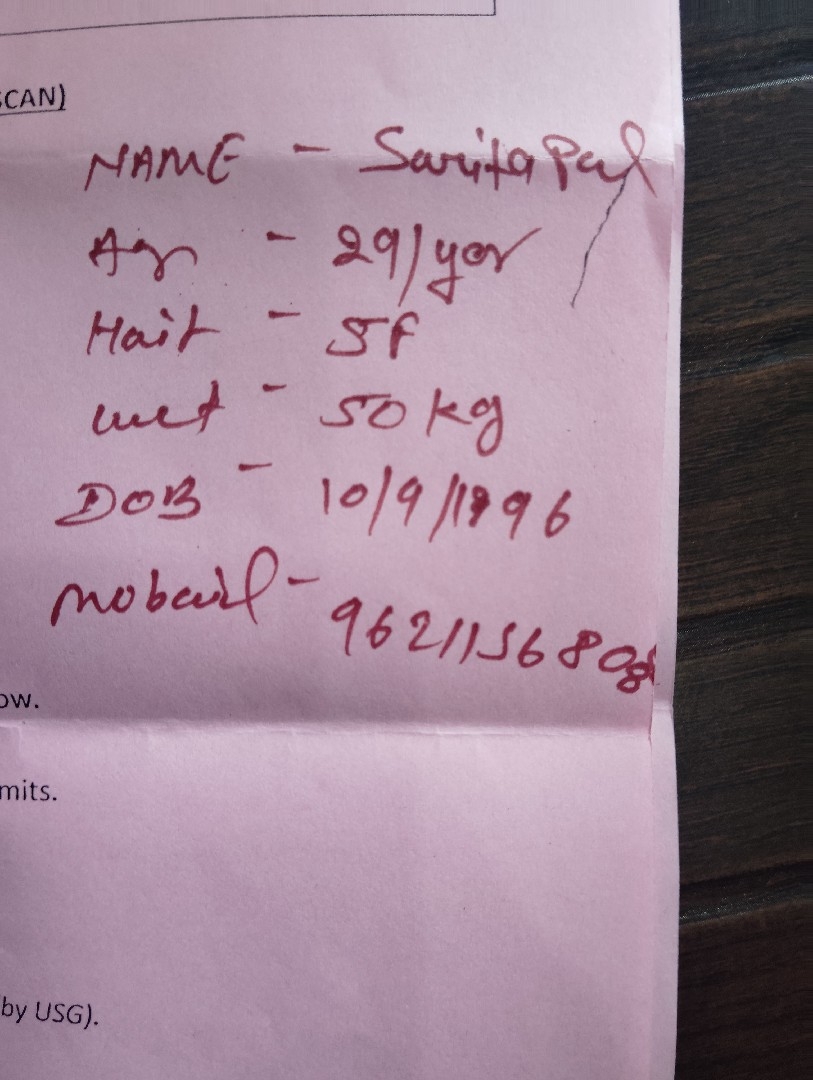 SCAN)
NAME - Sarita Pal
Age - 29/yor
Hait - 5f
wet - 50 kg
DOB - 10/9/1996
mobail -
962115680
ow.
mits.
by USG).